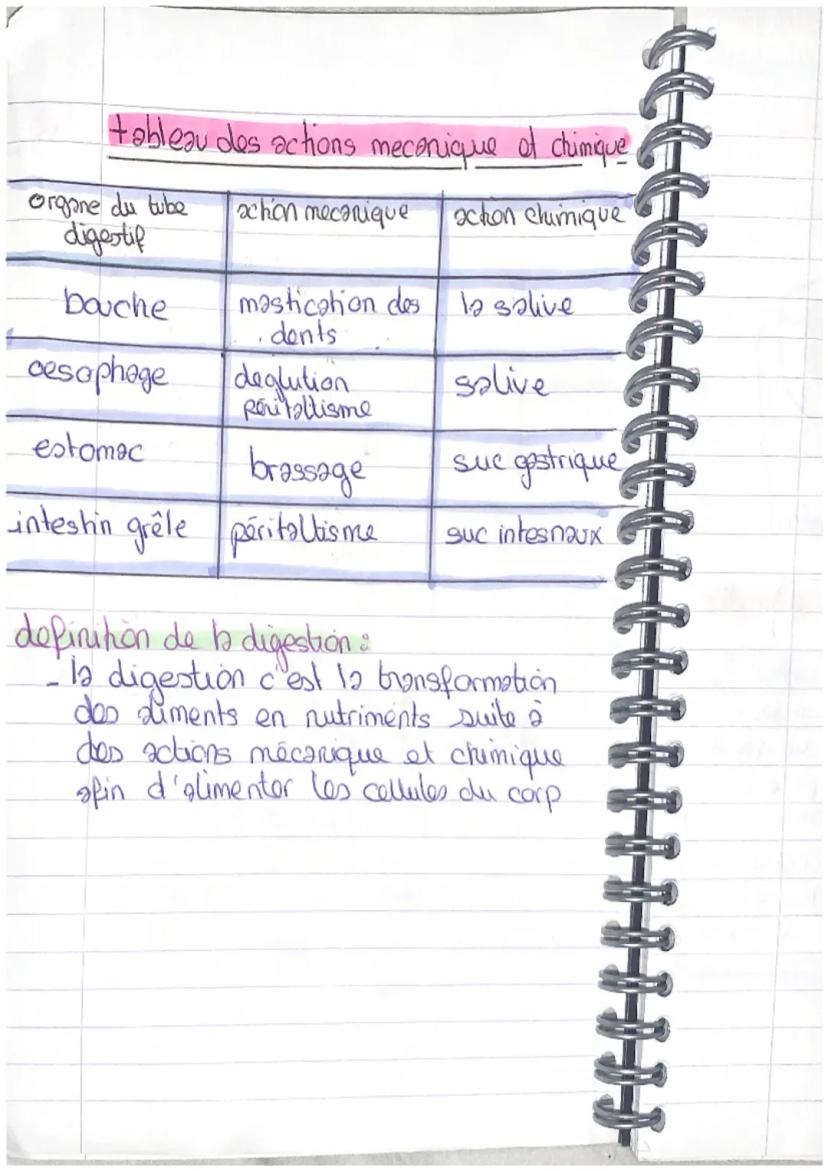 tableau des actions mecanique et chimique
organe du tube digestif | action mecanique | action chimique
bouche | mastication des dents | la salive
oesophage | deglution péritaltisme | salive
estomac | brassage | suc gastrique
intestin grêle | péritaltisme | suc intesnaux
definition de la digestion :
- la digestion c'est la transformation
des aliments en nutriments suite à
des actions mécanique et chimique
afin d'alimenter les cellules du corp